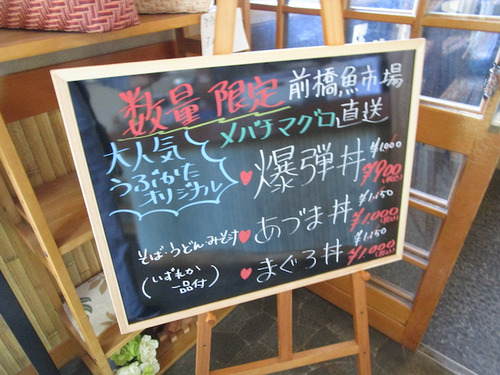 数量限定 前橋魚市場
メバチマグロ直送
大人気
うるかた
オリジナル
爆弾丼 ¥1,000
¥900(税込)
あづま丼 ¥1,150
¥1,000(税込)
まぐろ丼 ¥1,150
¥1,000(税込)
そば・うどん・みそ汁
(いずれか
一品付)